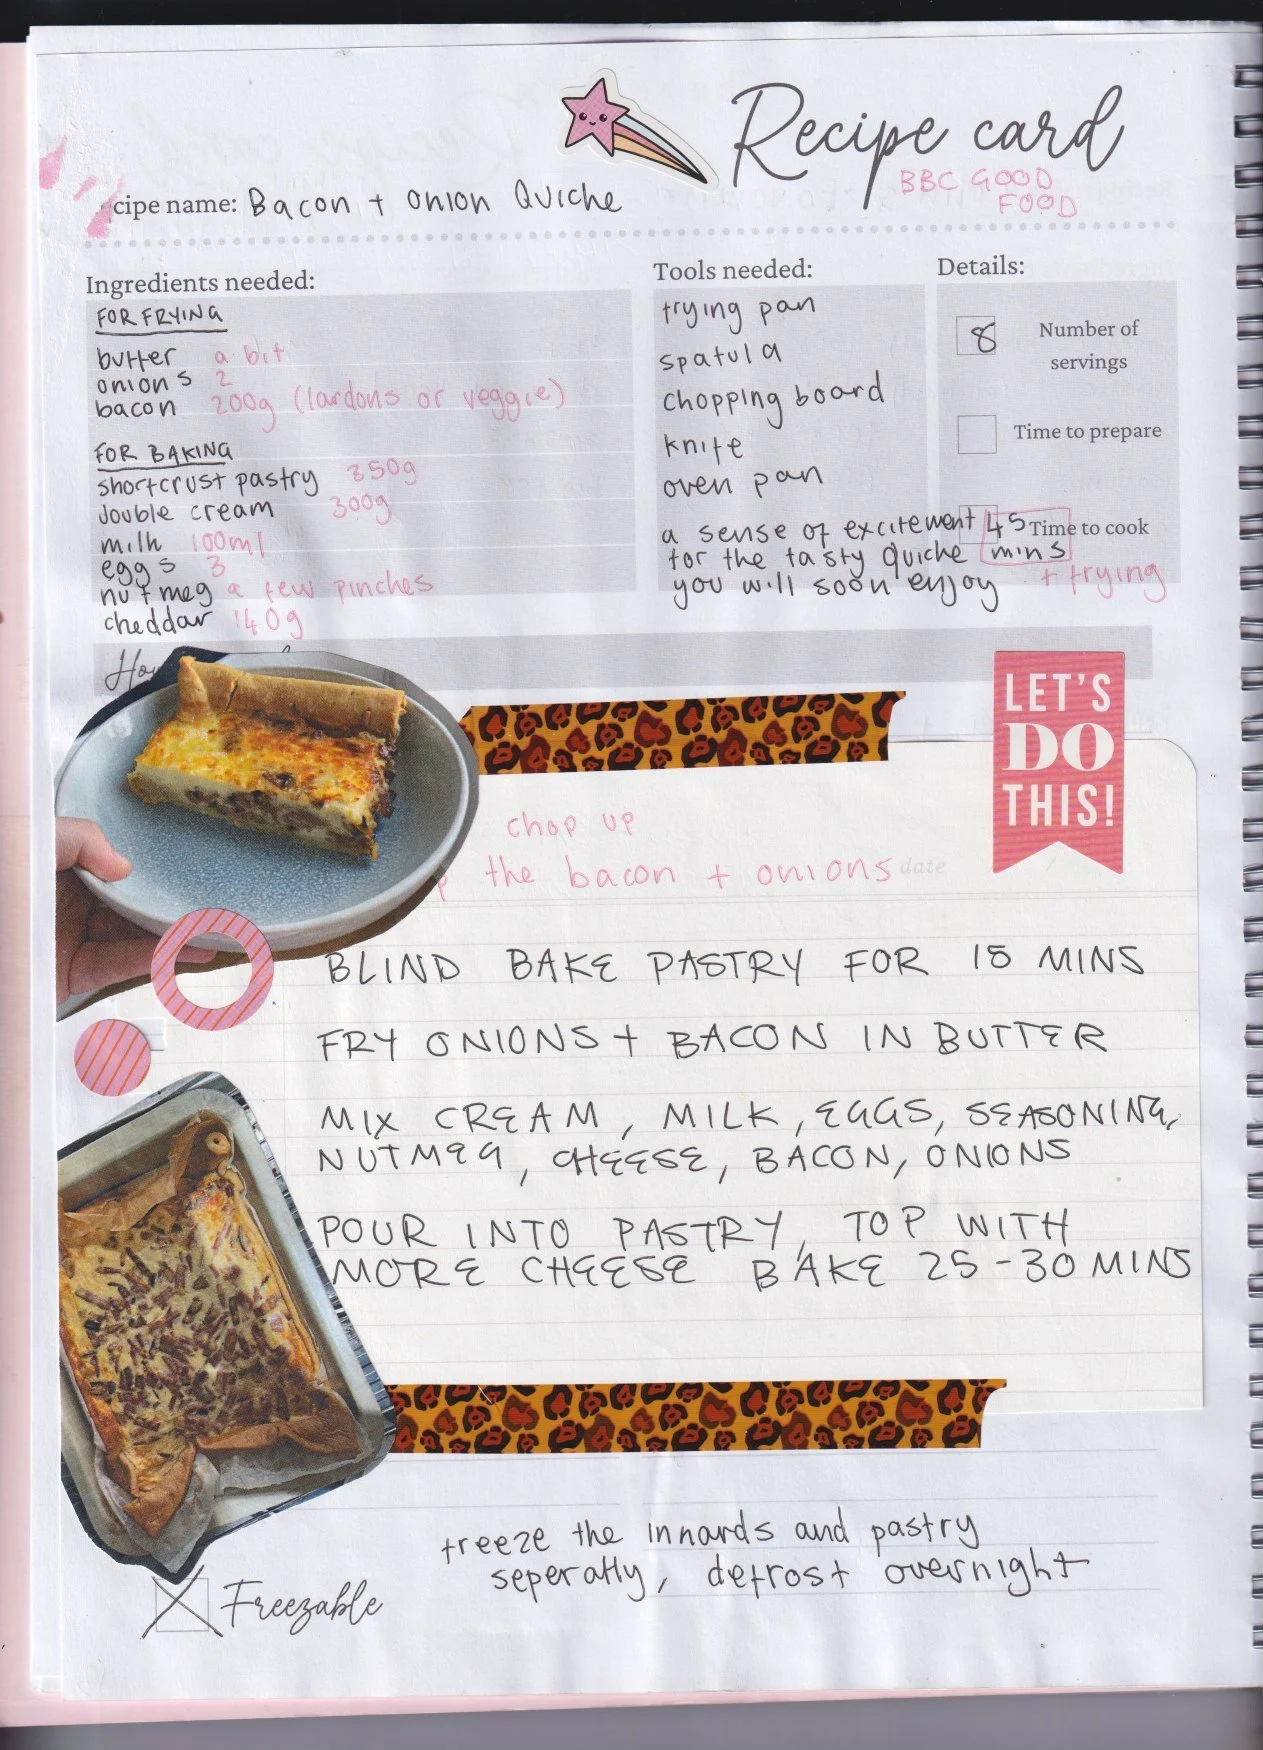 Recipe card
BBC GOOD
FOOD
cipe name: Bacon + Onion Quiche
Ingredients needed:
FOR FRYING
butter a bit
onions 2
bacon 200g (lardons or veggie)
FOR BAKING
shortcrust pastry 350g
double cream 300g
milk 100ml
eggs 3
nutmeg a few pinches
cheddar 140g
Tools needed:
frying pan
spatula
chopping board
knife
oven pan
a sense of excitement
for the tasty quiche
you will soon enjoy
Details:
8 Number of
servings
Time to prepare
45 Time to cook
mins
+ frying
LET'S
DO
THIS!
chop up
the bacon + onions
date
BLIND BAKE PASTRY FOR 15 MINS
FRY ONIONS + BACON IN BUTTER
MIX CREAM, MILK, EGGS, SEASONING,
NUTMEG, CHEESE, BACON, ONIONS
POUR INTO PASTRY, TOP WITH
MORE CHEESE BAKE 25-30 MINS
freeze the innards and pastry
seperatly, defrost overnight
Freezable